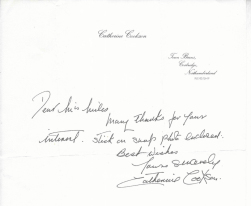 Catherine Cookson
Town Barns,
Corbridge,
Northumberland
Dear Miss Miles
Many thanks for your
interest. Stick on snap photo enclosed.
Best Wishes
Yours sincerely
Catherine Cookson.